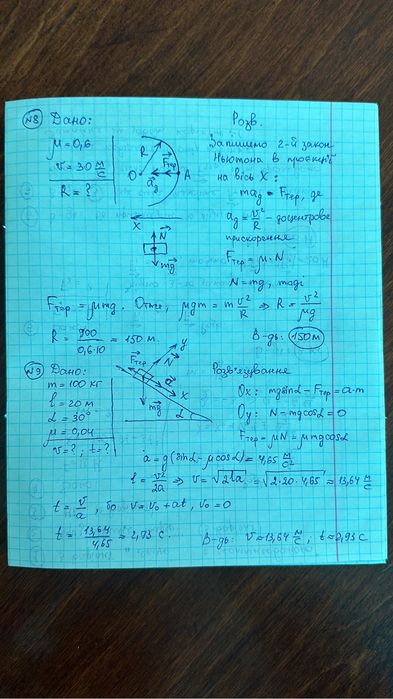 №8 Дано:
Розв.
μ = 0,6
v = 30 м/с
R = ?
R
F⃗тер
O
A
a⃗д
X
N⃗
mg⃗
Запишемо 2-й закон
Ньютона в проекції
на вісь X:
maд = Fтер, де
aд = v²/R - доцентрове
прискорення
Fтер = μ·N
N = mg, тоді
Fтер = μmg. Отже, μgm = m v²/R ⇒ R = v²/μg
R = 900/0,6·10 = 150 м.
В-дь: 150 м
№9 Дано:
Розв'язування
m = 100 кг
l = 20 м
α = 30°
μ = 0,04
v = ?, t = ?
y
F⃗тер
N⃗
a⃗
X
mg⃗
α
Ox: mg sinα - Fтер = a·m
Oy: N - mg cosα = 0
Fтер = μN = μmg cosα
a = g(sinα - μcosα) = 4,65 м/с²
l = v²/2a ⇒ v = √2la = √2·20·4,65 = 13,64 м/с
t = v/a, бо v = v₀ + at, v₀ = 0
t = 13,64/4,65 = 2,93 с
В-дь: v = 13,64 м/с, t = 2,93 с